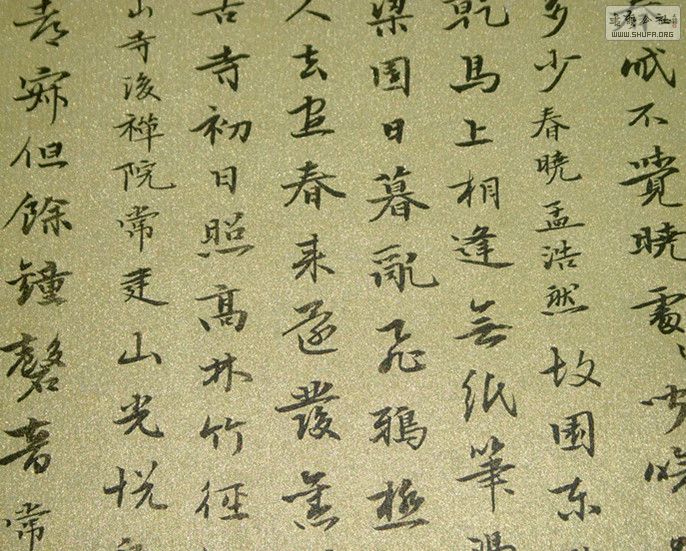 眠不覺曉處〻聞啼
多少春曉孟浩然故園東
乾馬上相逢無紙筆憑
梁園日暮亂飛鴉極
人去盡春來還發舊
古寺初日照高林竹徑
山寺後禪院常建山光悅
都寂但餘鐘磬音常
WWW.SHUFA.ORG